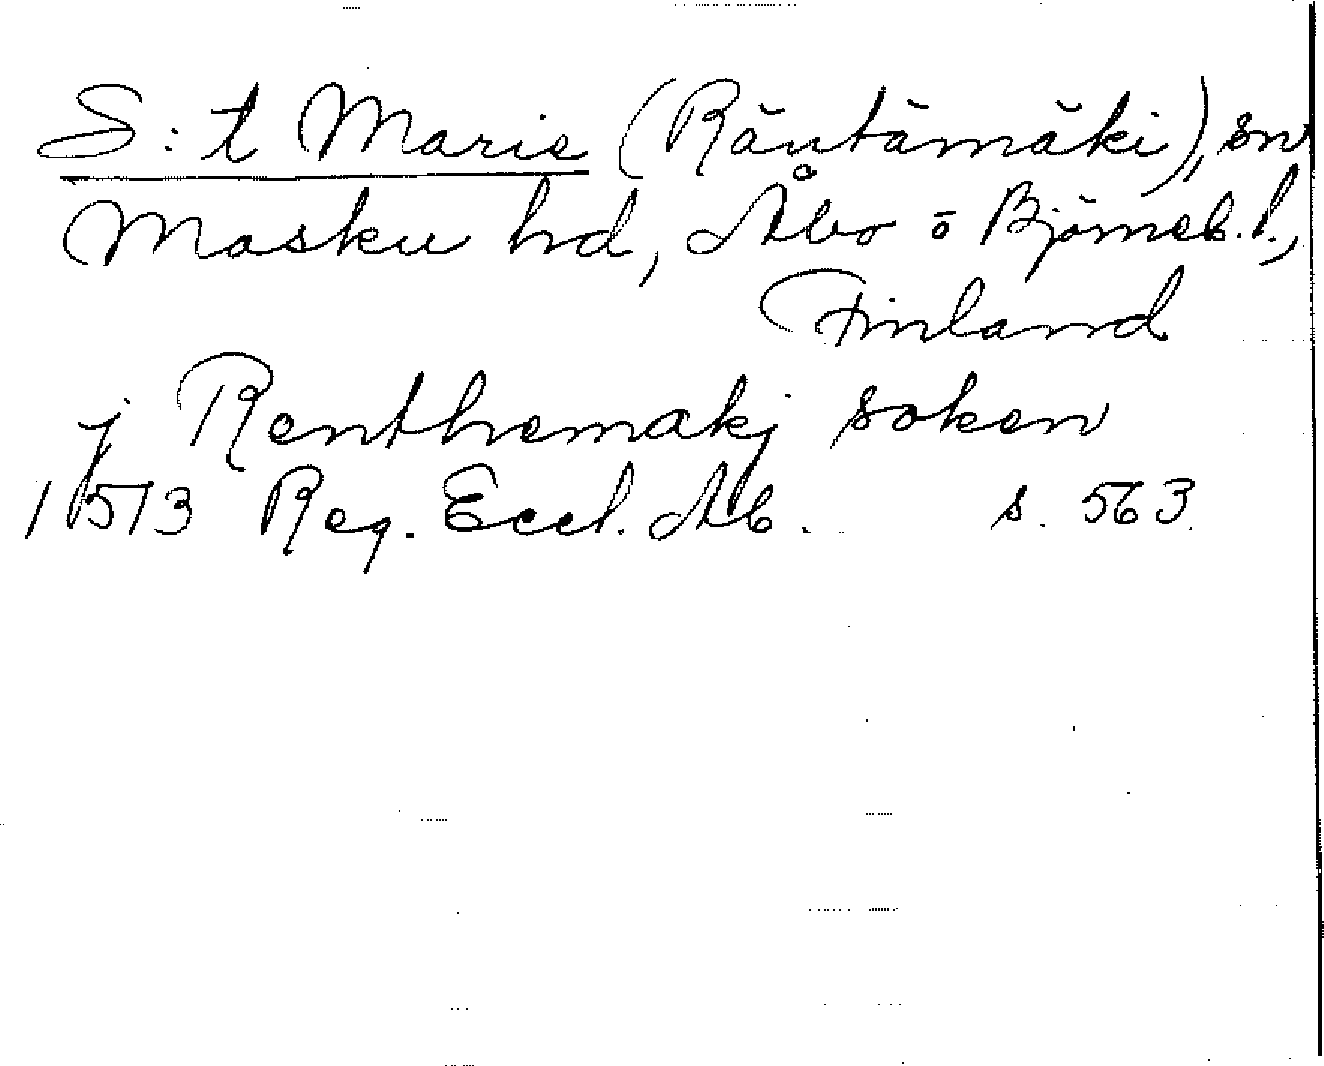 S:t Marie (Räntämäki), sn
Masku hd, Åbo o Björneb. l.,
Finland
j Renthemakj soken
1513 Reg. Eccl. Ab. s. 563